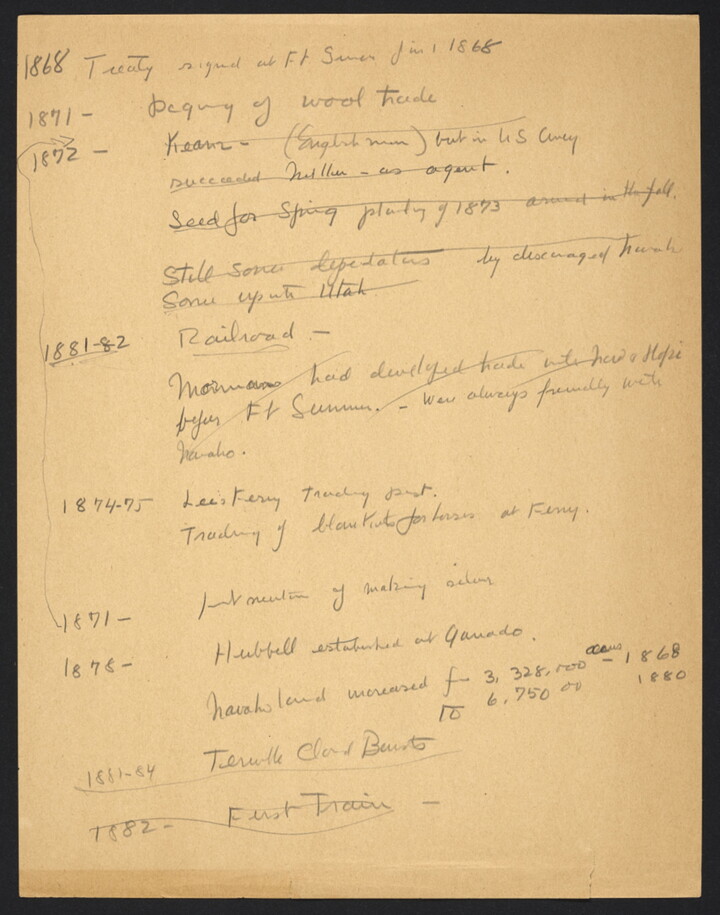 1868 Treaty signed at Ft Sumner Jun 1 1868
1871 - of wool trade
1872 - Keam - (Englishman) but in US Army
succeeded Miller - as agent.
Seed for Spring planting of 1873 arrived in the fall.
Still some depredations by discouraged Navaho
Some up into Utah
1881-82 Railroad -
Mormons had developed trade with Nav & Hopi
before Ft Sumner. - Were always friendly with
Navaho.
1874-75 Lee's Ferry trading post.
Trading of blankets for horses at Ferry.
1871 - of making silver
1878 - Hubbell established at Ganado.
Navaho land increased f 3,328,000 acres - 1868
to 6,750 00 1880
1881-84 Terrible Cloud Bursts
1882 - First Train -